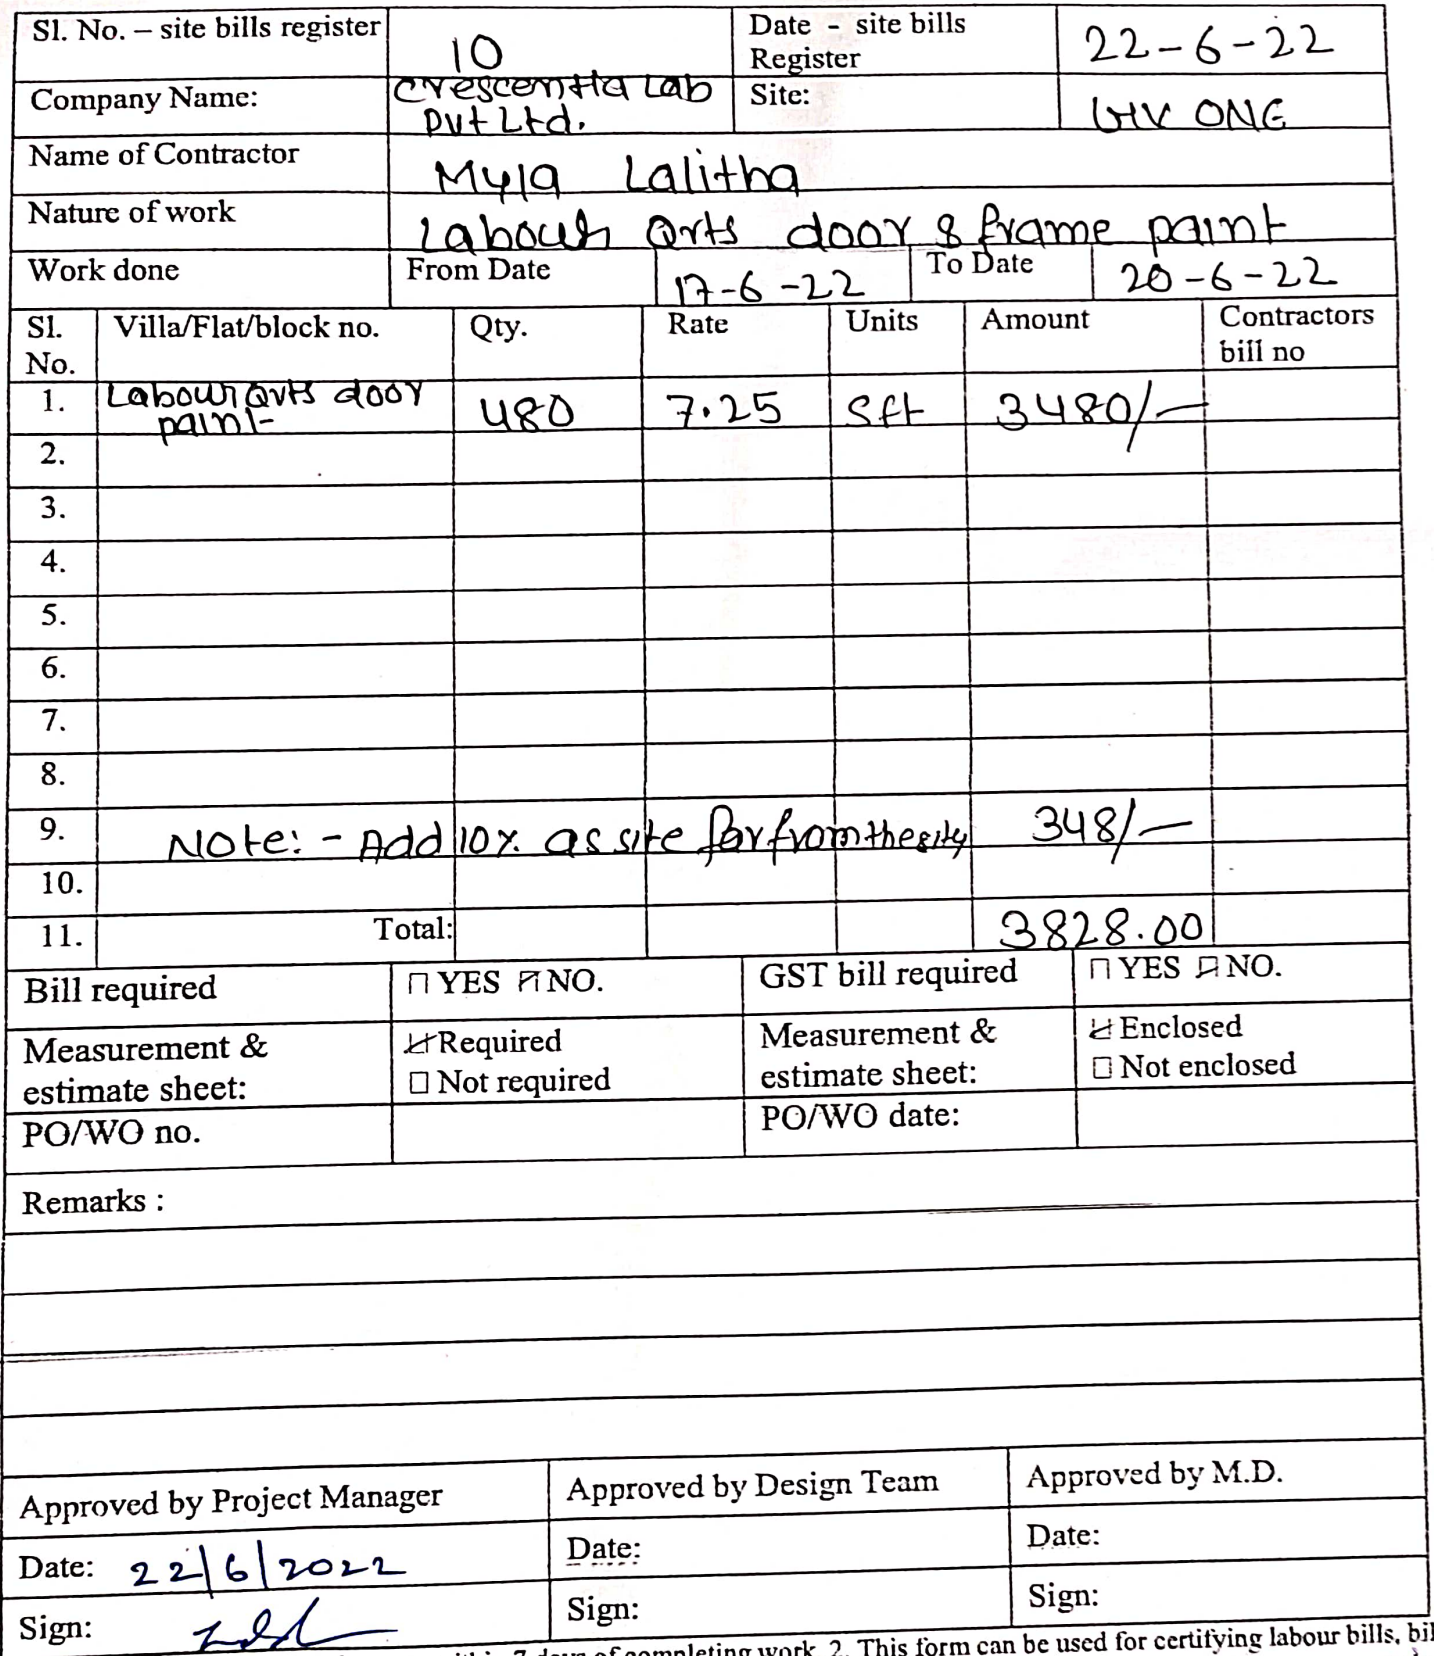 Sl. No. – site bills register 10 Date - site bills Register 22-6-22
Company Name: Crescentia Lab Pvt Ltd. Site: GIV ONE
Name of Contractor Myla Lalitha
Nature of work Labour Qrts door & frame paint
Work done From Date 17-6-22 To Date 20-6-22
Sl. No. Villa/Flat/block no. Qty. Rate Units Amount Contractors bill no
1. Labour Qrts door paint 480 7.25 Sft 3480/-
2.
3.
4.
5.
6.
7.
8.
9. Note: - Add 10% as site far from the city 348/-
10.
11. Total: 3828.00
Bill required YES NO. GST bill required YES NO.
Measurement & estimate sheet: Required Not required Measurement & estimate sheet: Enclosed Not enclosed
PO/WO no. PO/WO date:
Remarks :
Approved by Project Manager Approved by Design Team Approved by M.D.
Date: 22/6/2022 Date: Date:
Sign: Sign: Sign:
7 days of completing work. 2. This form can be used for certifying labour bills,